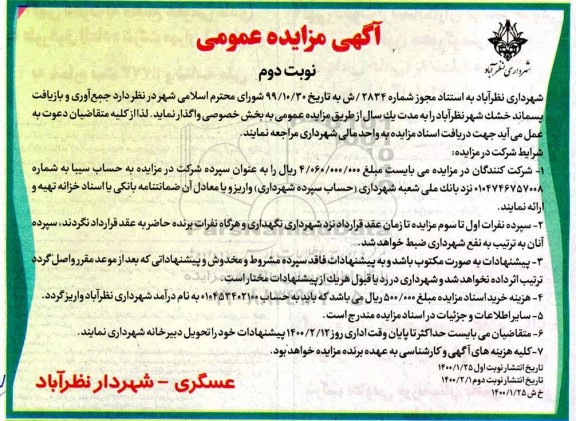 آگهی مزایده عمومی
نوبت دوم
شهرداری نظرآباد
شهرداری نظرآباد به استناد مجوز شماره ۲۸۳۴/ش به تاریخ ۹۹/۱۰/۳۰ شورای محترم اسلامی شهر در نظر دارد جمع‌آوری و بازیافت
پسماند خشك شهر نظرآباد را به مدت یك سال از طریق مزایده عمومی به بخش خصوصی واگذار نماید. لذا از كلیه متقاضیان دعوت به
عمل می آید جهت دریافت اسناد مزایده به واحد مالی شهرداری مراجعه نمایند.
شرایط شركت در مزایده:
۱- شركت كنندگان در مزایده می بایست مبلغ ۴/۰۶۰/۰۰۰/۰۰۰ ریال را به عنوان سپرده شركت در مزایده به حساب سیبا به شماره
۰۱۰۴۷۴۶۷۵۷۰۰۸ نزد بانك ملی شعبه شهرداری (حساب سپرده شهرداری) واریز و یا معادل آن ضمانتنامه بانكی یا اسناد خزانه تهیه و
ارائه نمایند.
۲- سپرده نفرات اول تا سوم مزایده تا زمان عقد قرارداد نزد شهرداری نگهداری و هرگاه نفرات برنده حاضر به عقد قرارداد نگردند، سپرده
آنان به ترتیب به نفع شهرداری ضبط خواهد شد.
۳- پیشنهادات به صورت مكتوب باشد و به پیشنهادات فاقد سپرده مشروط و مخدوش و پیشنهاداتی كه بعد از موعد مقرر واصل گردد
ترتیب اثر داده نخواهد شد و شهرداری در رد یا قبول هر یك از پیشنهادات مختار است.
۴- هزینه خرید اسناد مزایده مبلغ ۵۰۰/۰۰۰ ریال می باشد كه باید به حساب ۰۱۰۴۵۳۴۰۲۱۰۰ به نام درآمد شهرداری نظرآباد واریز گردد.
۵- سایر اطلاعات و جزئیات در اسناد مزایده مندرج است.
۶- متقاضیان می بایست حداكثر تا پایان وقت اداری روز ۱۴۰۰/۲/۱۲ پیشنهادات خود را تحویل دبیرخانه شهرداری نمایند.
۷- كلیه هزینه های آگهی و كارشناسی به عهده برنده مزایده خواهد بود.
تاریخ انتشار نوبت اول ۱۴۰۰/۱/۲۵
تاریخ انتشار نوبت دوم ۱۴۰۰/۲/۱
خ ش ۱۴۰۰/۱/۲۵
عسگری - شهردار نظرآباد